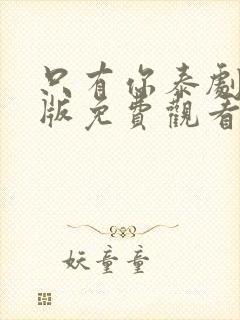 只有你泰劇
版免費觀看
妖童童